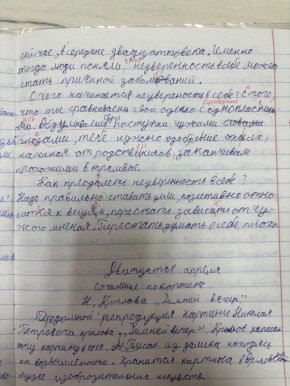 сейчас, в середине двадцатого века. Именно
тогда люди поняли, неуверенность в себе может
стать причиной заболеваний.
С чего начинается неуверенность в себе? С того
что ты сравниваешь свои оценки с однокласни
поступки чужими
глазами, тебе нужно одобрение
начиная от родственников, заканчивая
прохожими в трамвае.
Как преодолеть неуверенность в себе?
Надо правильно ставить цели, позитивно отно
ситься к вещам, перестать зависеть от чу-
жого мнения. Перестать думать о себе плохо.
апреля
сочинение по картине
Н. Крылова „Зимний вечер"
Передо мной репродукция картины Николая
Петровича Крылова „Зимний вечер". Крылов написал
эту картину
на возвышенности. Хранится картина в
музее изобразительных искусств.